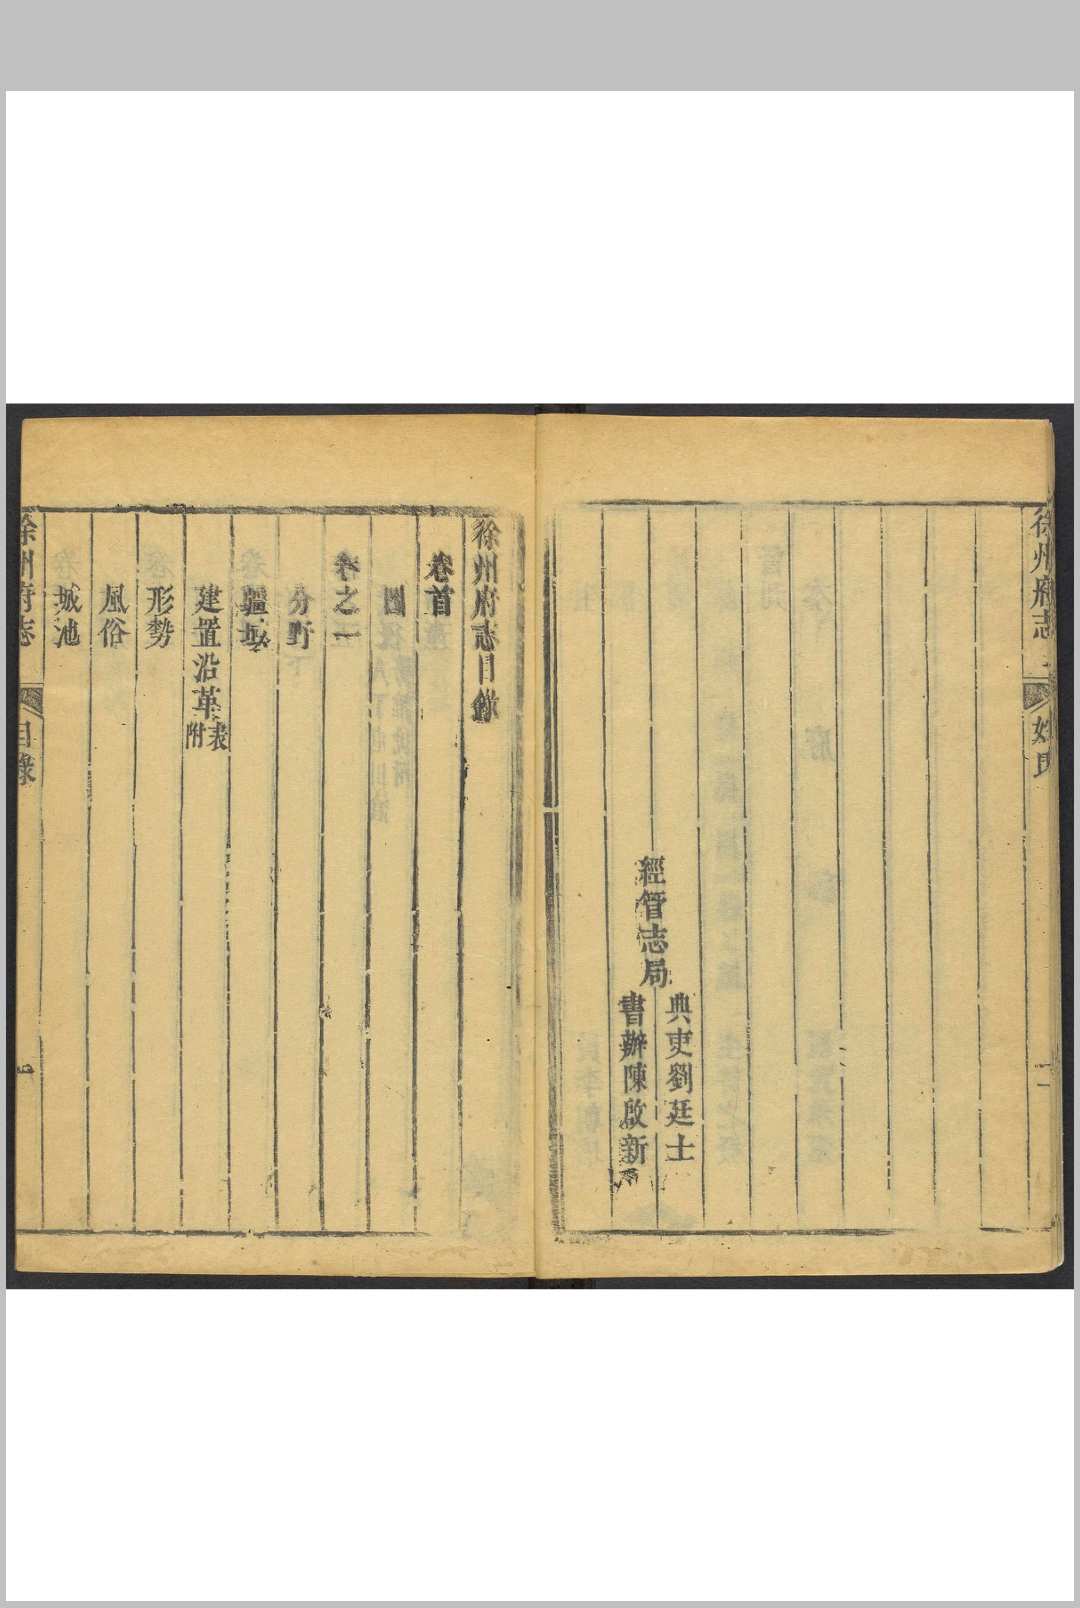 徐州府志
姓氏
經管志局
典吏劉廷士
書辦陳啟新
徐州府志目錄
卷首
圖
卷之一
分野
疆域
建置沿革表附
形勢
風俗
城池
徐州府志
目錄
一